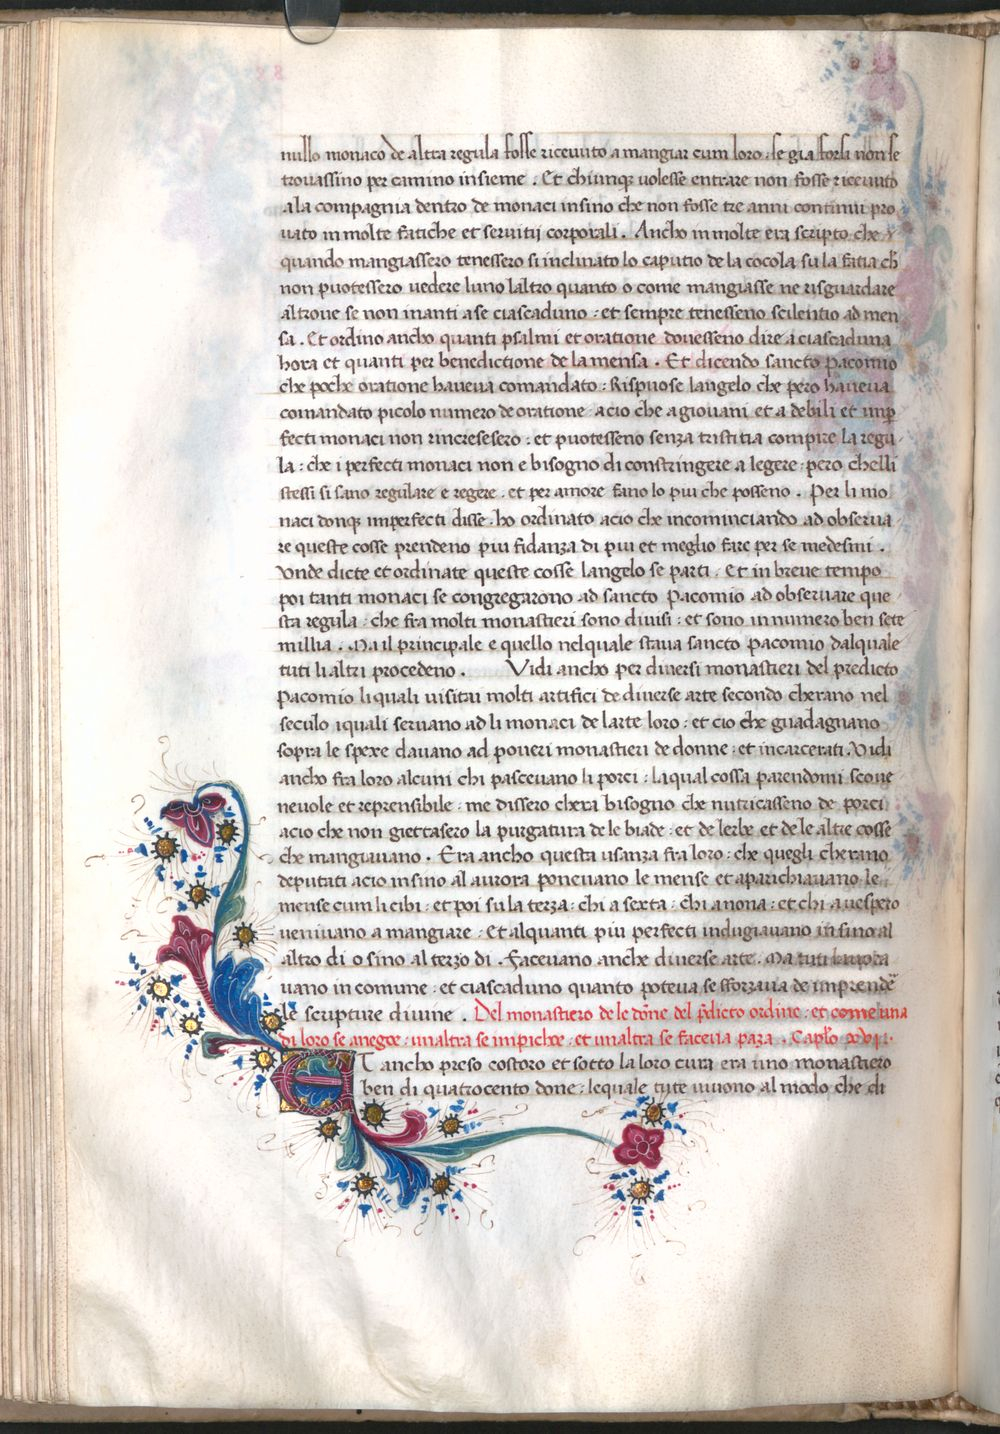 nullo monaco de altra regula fosse ricevuto a mangiar cum loro : se gia forsa non se
trovassino per camino insieme . Et chiunq uolesse entrare non fosse ricevuto
a la compagnia dentro de monaci insino che non fosse tre anni continui pro
uato in molte fatiche et seruitij corporali . Ancho in molte era scripto che
quando mangiassero tenessero si inclinato lo caputio de la cocola su la facia ch
non puotessero uedere luno laltro quanto o come mangiasse ne risguardare
altroue se non inanti a se ciascaduno : et sempre tenesseno scilentio ad men
sa . Et ordino ancho quanti psalmi et oratione douesseno dire a ciascaduna
hora et quanti per benedictione de la mensa . Et dicendo sancto Pacomio
che poche oratione haueua comandato : Rispuose langelo che pero haueua
comandato picolo numero de oratione : acio che a giouani et a debili et imp
fecti monaci non rincresesero : et puotesseno senza tristitia compire la regu
la : che i perfecti monaci non e bisogno di constringere a legere : pero chelli
stessi si sano regulare e regere : et per amore fano lo piu che posseno . Per li mo
naci donq imperfecti disse : ho ordinato acio che incominciando ad obserua
re queste cosse prendeno piu fidanza di piu et meglio fare per se medesmi .
Unde dicte et ordinate queste cosse langelo se parti . Et in breue tempo
poi tanti monaci se congregarono ad sancto Pacomio ad obseruare que
sta regula : che fra molti monastieri sono diuisi : et sono in numero ben sete
millia . Ma il principale e quello nelquale staua sancto Pacomio dalquale
tuti li altri procedeno . Vidi ancho per diuersi monastieri del predicto
Pacomio li quali uisitai molti artifici de diuerse arte secondo cherano nel
seculo i quali seruano ad li monaci de larte loro : et cio che guadagnano
sopra le spexe dauano ad poueri monastieri de donne : et incarcerati . Vidi
ancho fra loro alcuni chi pasceuano li porci : la qual cossa parendomi scone
neuole et reprensibile : me dissero chera bisogno che nutricasseno de porci
acio che non giettasero la purgatura de le biade : et de lerbe et de le altre cosse
che mangiauano . Era ancho questa usanza fra loro : che quegli cherano
deputati acio insino al aurora poneuano le mense et aparichiauano le
mense cum li cibi : et poi su la terza : chi a sexta : chi a nona : et chi a uespero
ueniuano a mangiare : Et alquanti piu perfecti indugiauano insino al
altro di o sino al terzo di . Faceuano anche diuerse arte . Ma tuti lauora
uano in comune : et ciascaduno quanto poteua se sforzaua de imprende
le scripture diuine . Del monastiero de le done del pdicto ordine : et come una
di loro se anegoe : unaltra se impichoe : et unaltra se faceua paza . Caplo xvij .
ET ancho preso costoro et sotto la loro cura era uno monastiero
ben di quatrocento done : lequale tute uiuono al modo che di